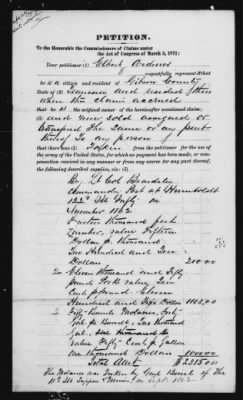 PETITION.
To the Honorable the Commissioners of Claims under
the Act of Congress of March 3, 1871:
Your petitioner (1) Elbert
respectfully represent S that
he is a citizen and resident of Gibson County
State of (2) Tennessee and resided there
when the claim accrued
that he is the original owner of the hereinafter mentioned claim;
(3) and never sold assigned or
transferred the same or any part
that there was (4) taken from the petitioner for the use of
the army of the United States, for which no payment has been made, or compensation
received in any manner or from any source for any part thereof,
the following described supplies, viz: (5)
By Lt Col
Post at Humboldt
122d Ill Infty in
1862
thousand feet
lumber, value Fifteen
Dollars per thousand
Two Hundred and Ten
Dollars 210 00
2 Eleven thousand and Fifty
pounds Pork value Ten
Cents per pound Eleven
Hundred and Five Dollars 1105,00
3 Fifty Barrels Molasses, Forty
Gal per Barrel, Two thousand
Gal.
value Fifty Cents per Gallon
one thousand Dollars 1000 00
Total Amt $2315 00
The Molasses was taken by
Ill in Sept 1862